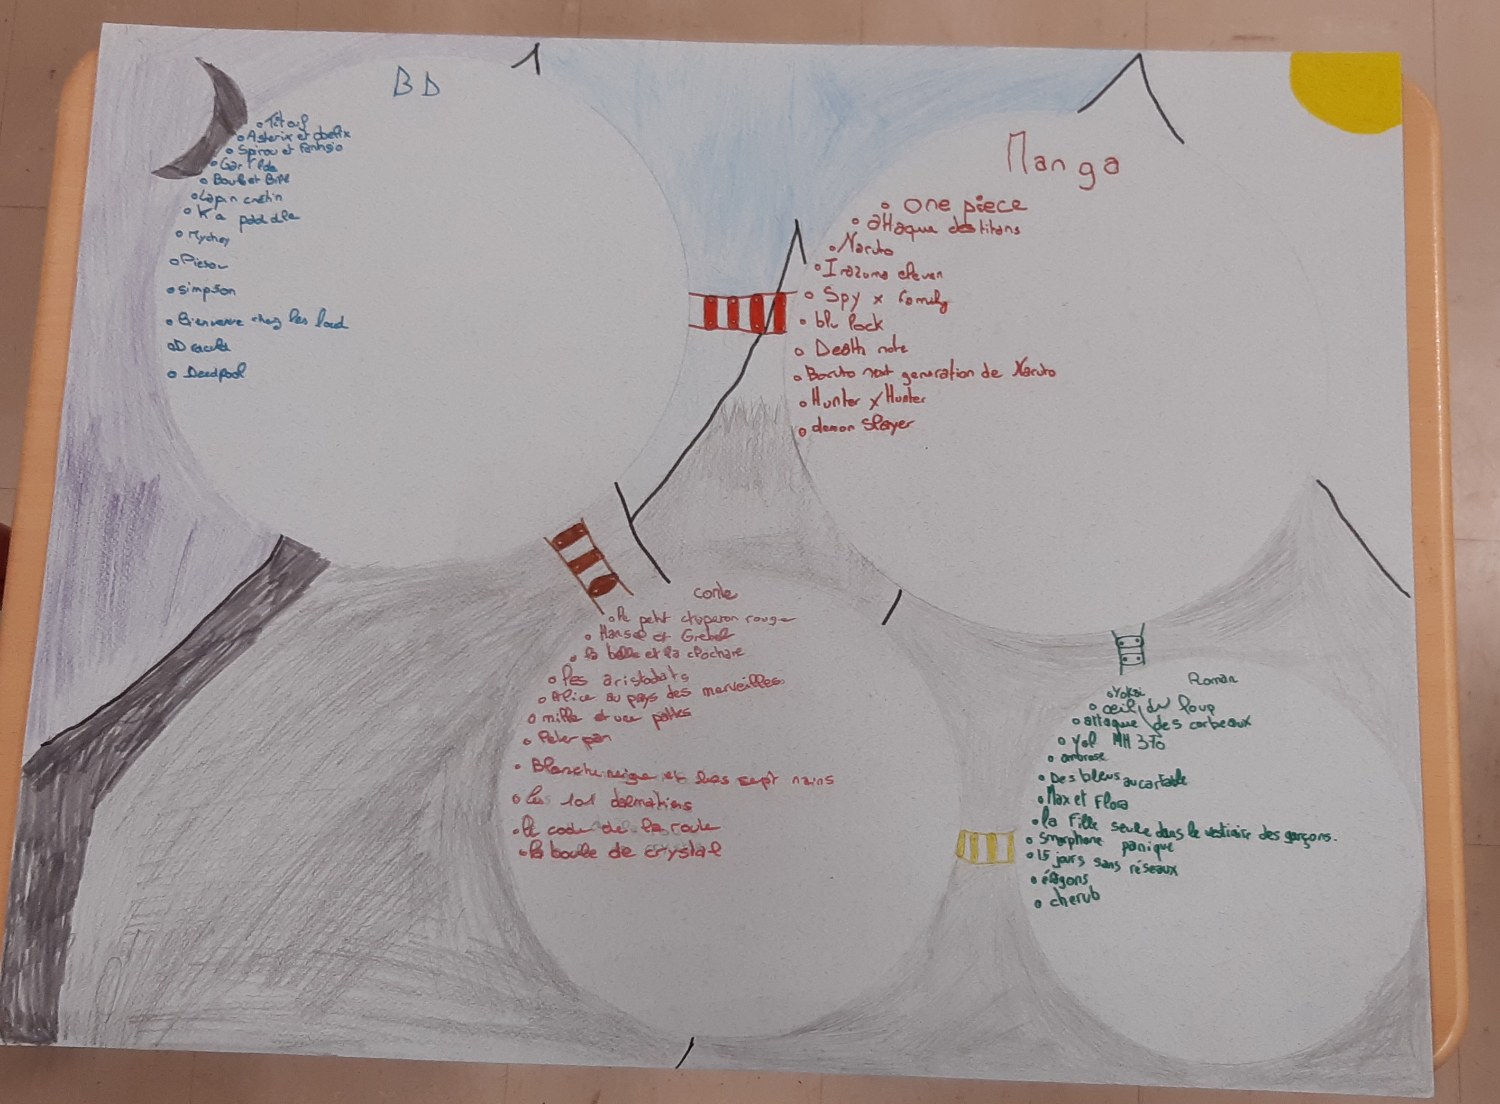 BD
• Titeuf
• Asterix et obelix
• Spirou et Fantasio
• Garfilde
• Boul et Bill
• Lapin crétin
• Ka pad dle
• Mychey
• Picsou
• simpson
• Bienvenue chez les loud
• Dracula
• Deadpool
Manga
• one piece
• attaque des titans
• Naruto
• Inazuma eleven
• Spy x family
• blu lock
• Death note
• Boruto next generation de Naruto
• Hunter x Hunter
• demon slayer
conte
• le petit chaperon rouge
• Hansel et Gretel
• la belle et la clochare
• les aristochats
• Alice au pays des merveilles
• mille et une pattes
• Peter pan
• Blanche neige et les sept nains
• Les 101 dalmatiens
• le code de la route
• la boule de crystal
Roman
• Yokai
• œil du loup
• attaque des corbeaux
• Vol MH 370
• ambrose
• Des bleus au cartable
• Max et Flora
• la fille seule dans le vestiaire des garçons.
• Smarphone panique
• 15 jours sans réseaux
• éragons
• cherub